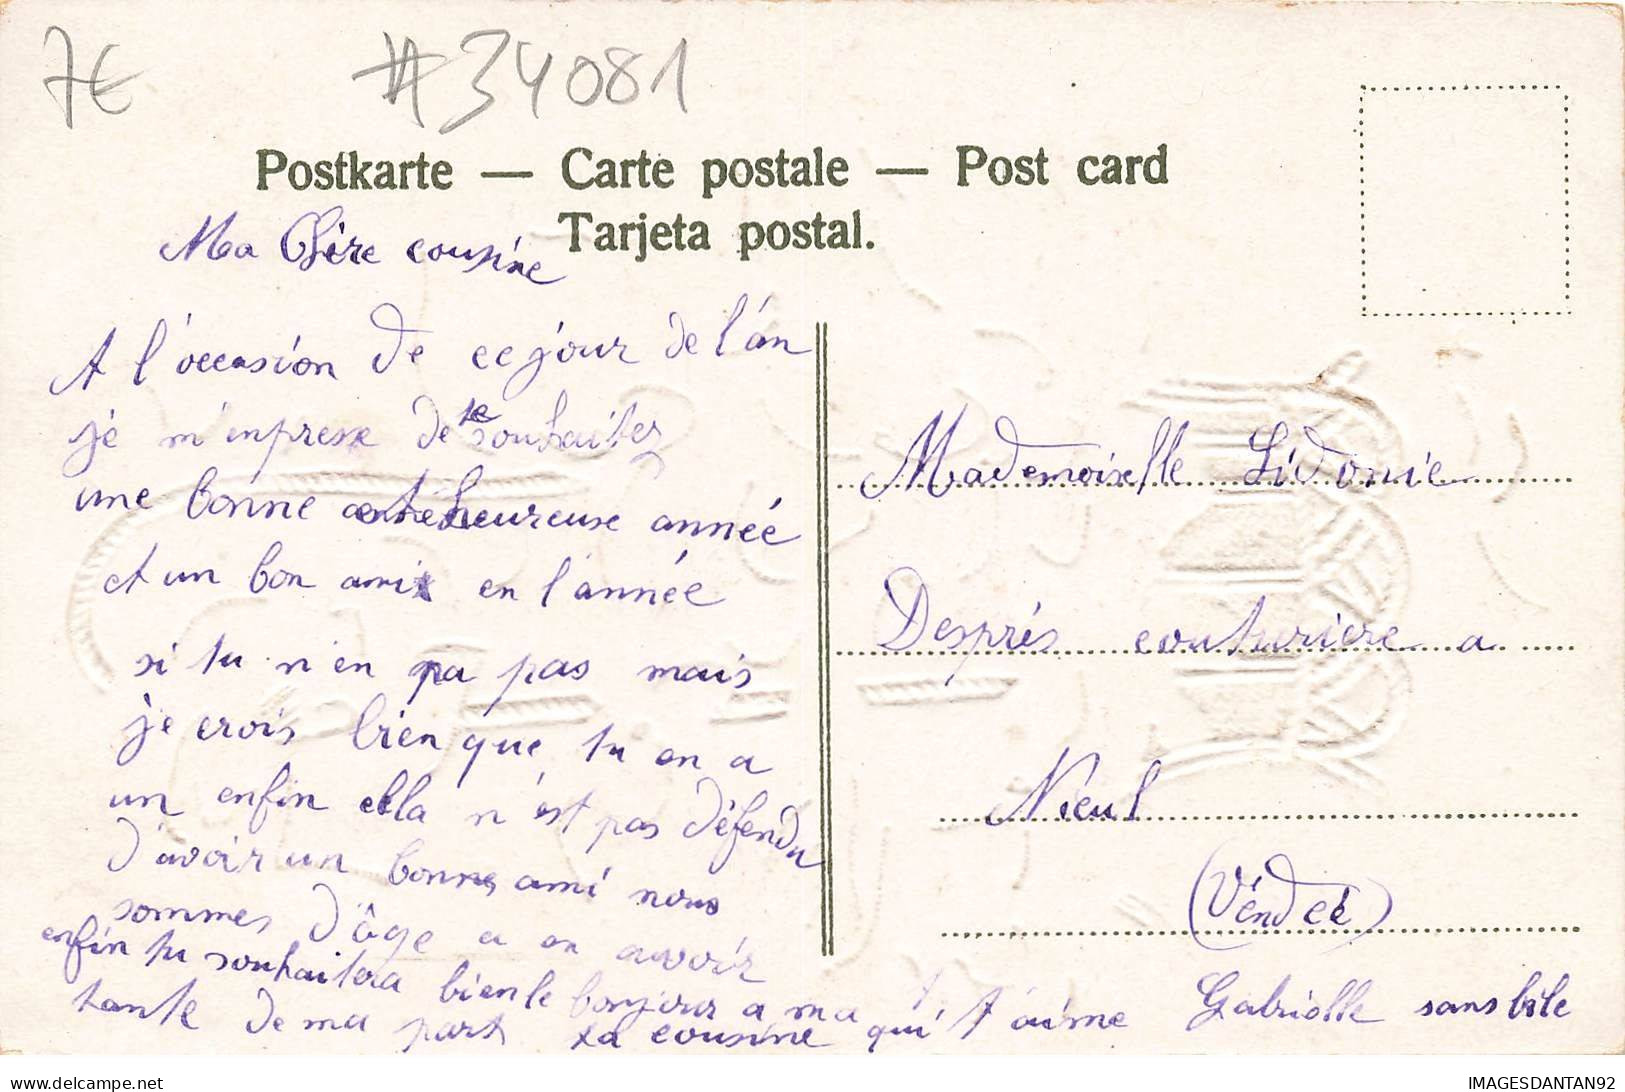 7€ #34081
Postkarte — Carte postale — Post card
Tarjeta postal.
Ma Chère cousine
A l'occasion de ce jour de l'an
je m'inprese de te souhaiter
une bonne et heureuse année
et un bon ami en l'année
si tu n'en pa pas mais
je crois bien que tu en a
un enfin ella n'est pas défendu
d'avoir un bonne ami nous
sommes d'âge a en avoir
enfin tu souhaitera bien le bonjour a ma
tante de ma part ta cousine qui t'aime Gabrielle sans bile
Mademoiselle Sidonie
Després couturiere a
Nieul
(Véndée)
IMAGESDANTAN92